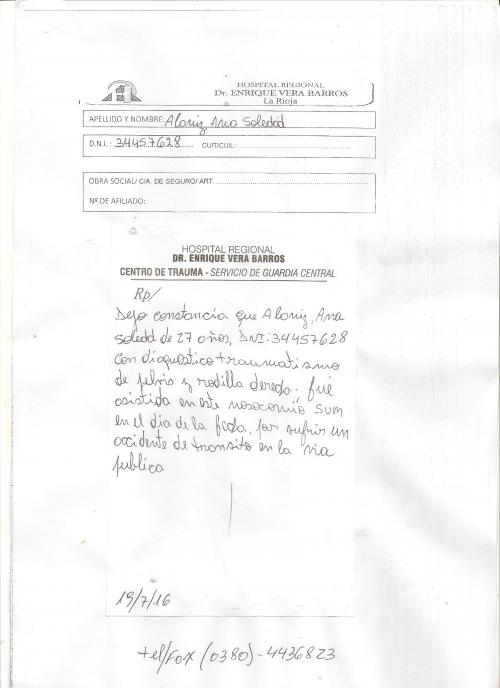 HOSPITAL REGIONAL
Dr. ENRIQUE VERA BARROS
La Rioja
APELLIDO Y NOMBRE: Aloniz, Ana Soledad
D.N.I.: 34457628 CUIT/CUIL:
OBRA SOCIAL/ CIA. DE SEGURO/ ART:
Nº DE AFILIADO:
HOSPITAL REGIONAL
DR. ENRIQUE VERA BARROS
CENTRO DE TRAUMA - SERVICIO DE GUARDIA CENTRAL
Rp/
Dejo constancia que Aloniz, Ana
Soledad de 27 años, DNI: 34457628
con diagnostico traumatismo
de pelvis y rodilla derecha. fué
asistida en este nosocomio SUM
en el día de la fecha, por sufrir un
accidente de transito en la via
publica
19/7/16
tel/fax (0380)-4436823